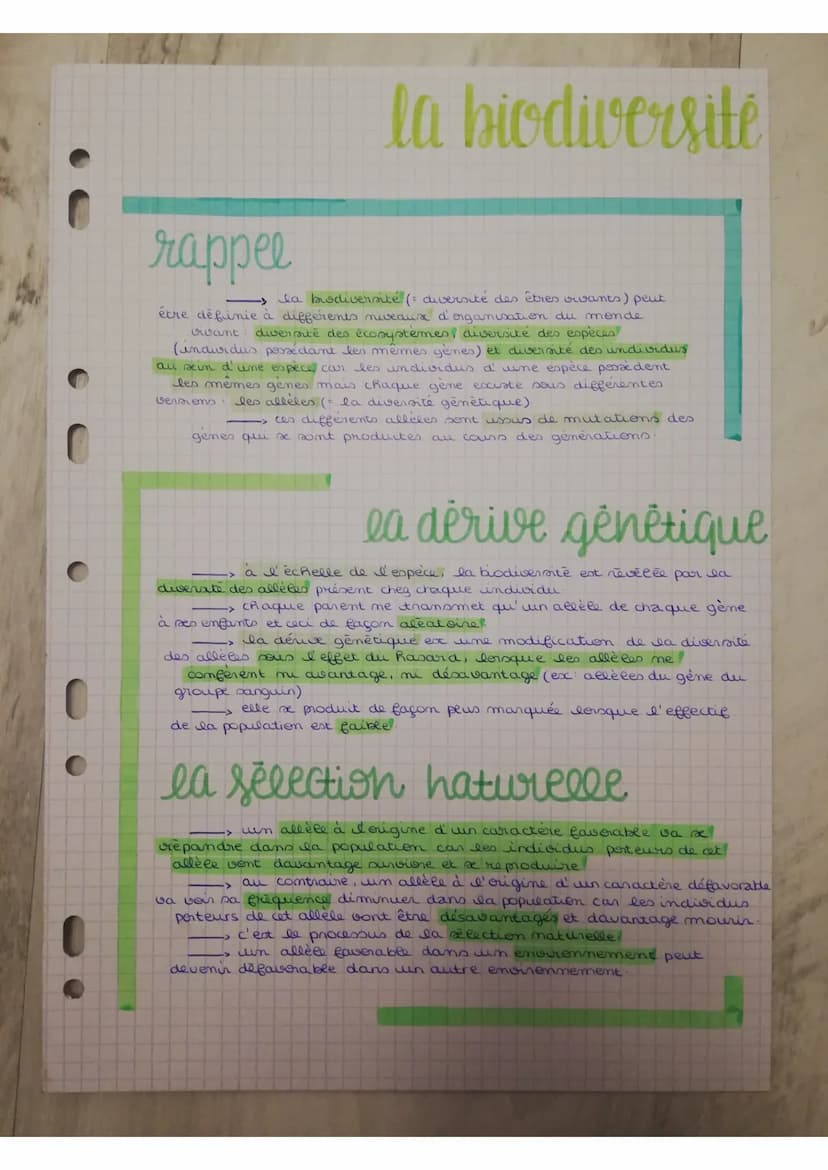 la biodiversité
rappel
→ la biodiversité (= diversité des êtres vivants) peut
être définie à différents niveaux d'organisation du monde
vivant : diversité des écosystèmes, diversité des espèces
(individus possédant les mêmes gènes) et diversité des individus
au sein d'une espèce car les individus d'une espèce possèdent
les mêmes gènes mais chaque gène existe sous différentes
versions : les allèles (= la diversité génétique)
→ ces différents allèles sont issus de mutations des
gènes qui se sont produites au cours des générations.
la dérive génétique
→ à l'échelle de l'espèce, la biodiversité est révélée par la
diversité des allèles présent chez chaque individu
→ chaque parent ne transmet qu'un allèle de chaque gène
à ses enfants et ceci de façon aléatoire
→ la dérive génétique est une modification de la diversité
des allèles sous l'effet du hasard, lorsque les allèles ne
confèrent ni avantage, ni désavantage (ex: allèles du gène du
groupe sanguin)
→ elle se produit de façon plus marquée lorsque l'effectif
de la population est faible
la sélection naturelle
→ un allèle à l'origine d'un caractère favorable va se
répandre dans la population car les individus porteurs de cet
allèle vont davantage survivre et se reproduire
→ au contraire, un allèle à l'origine d'un caractère défavorable
va voir sa fréquence diminuer dans la population car les individus
porteurs de cet allèle vont être désavantagés et davantage mourir.
→ c'est le processus de la sélection naturelle
→ un allèle favorable dans un environnement peut
devenir défavorable dans un autre environnement.